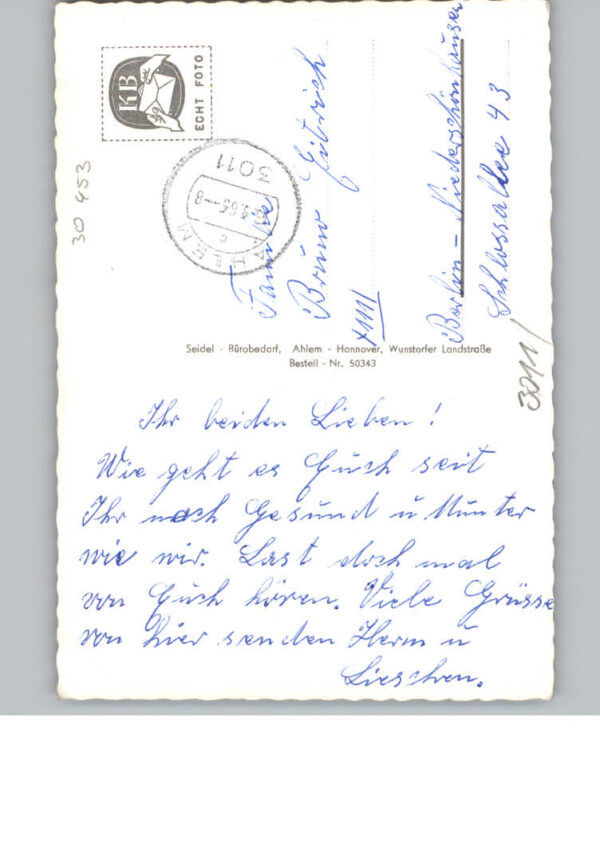 Ihr beiden Lieben!
Wie geht es Euch seit
Ihr noch Gesund u Munter
wie wir. Last doch mal
von Euch hören. Viele Grüsse
von hier senden Herm u
Lieschen.
Familie
Bruno
XIIII
Berlin - Niederschönhausen
Schlossallee 43
Seidel - Bürobedarf, Ahlem - Hannover, Wunstorfer Landstraße
Bestell - Nr. 50343
KB
ECHT FOTO
3011
AHLEM
c
30 453
3011/